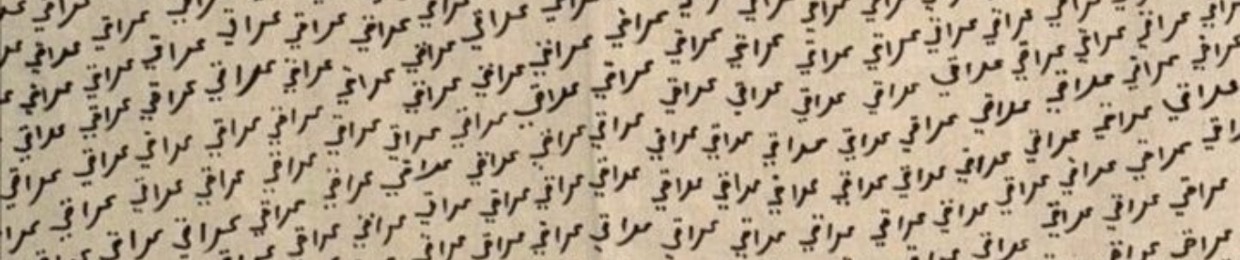 عراقي عراقي عراقي عراقي عراقي عراقي عراقي عراقي عراقي عراقي عراقي عراقي
عراقي عراقي عراقي عراقي عراقي عراقي عراقي عراقي عراقي عراقي عراقي عراقي عراقي عراقي عراقي عراقي عراقي عراقي
عراقي عراقي عراقي عراقي عراقي عراقي عراقي عراقي عراقي عراقي عراقي عراقي عراقي عراقي عراقي عراقي عراقي عراقي
عراقي عراقي عراقي عراقي عراقي عراقي عراقي عراقي عراقي عراقي عراقي عراقي عراقي عراقي عراقي عراقي عراقي عراقي
عراقي عراقي عراقي عراقي عراقي عراقي عراقي عراقي عراقي عراقي عراقي عراقي عراقي عراقي عراقي عراقي عراقي عراقي
عراقي عراقي عراقي عراقي عراقي عراقي عراقي عراقي عراقي عراقي عراقي عراقي عراقي عراقي عراقي عراقي عراقي عراقي
عراقي عراقي عراقي عراقي عراقي عراقي عراقي عراقي عراقي عراقي عراقي عراقي عراقي عراقي عراقي عراقي